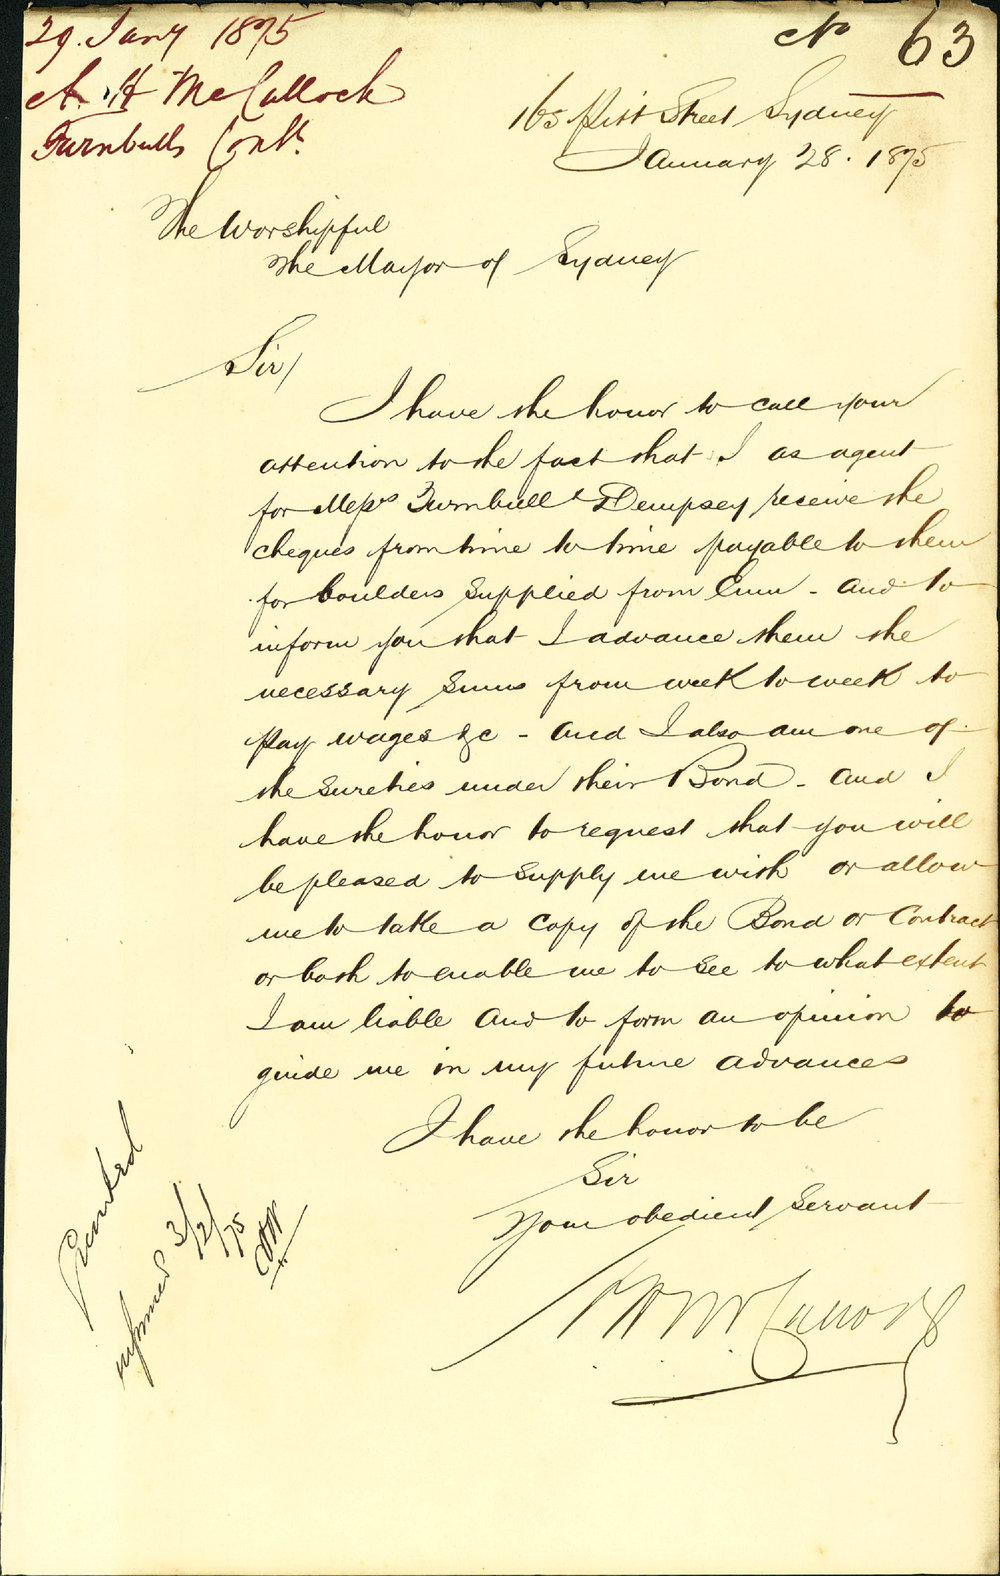 29. Jany 1875
A. H McCulloch
Turnbulls Cont.
No 63
165 Pitt Street Sydney
January 28. 1875
The Worshipful
The Mayor of Sydney
Sir/
I have the honor to call your
attention to the fact that I as agent
for Messrs Turnbull & Dempsey receive the
cheques from time to time payable to them
for boulders supplied from Emu - and to
inform you that I advance them the
necessary sums from week to week to
pay wages &c - and I also am one of
the sureties under their Bond - and I
have the honor to request that you will
be pleased to supply me with or allow
me to take a copy of the Bond or Contract
or both to enable me to see to what extent
I am liable and to form an opinion to
guide me in my future advances
I have the honor to be
Sir
Your obedient Servant
A H McCulloch
Granted
informed 3/2/75